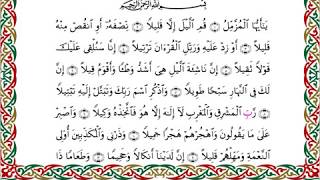 بِسْمِ ٱللَّهِ ٱلرَّحْمَٰنِ ٱلرَّحِيمِ
يَٰٓأَيُّهَا ٱلْمُزَّمِّلُ ۝ قُمِ ٱلَّيْلَ إِلَّا قَلِيلًا ۝ نِّصْفَهُۥٓ أَوِ ٱنقُصْ مِنْهُ
قَلِيلًا ۝ أَوْ زِدْ عَلَيْهِ وَرَتِّلِ ٱلْقُرْءَانَ تَرْتِيلًا ۝ إِنَّا سَنُلْقِى عَلَيْكَ
قَوْلًا ثَقِيلًا ۝ إِنَّ نَاشِئَةَ ٱلَّيْلِ هِىَ أَشَدُّ وَطْـًٔا وَأَقْوَمُ قِيلًا ۝ إِنَّ
لَكَ فِى ٱلنَّهَارِ سَبْحًا طَوِيلًا ۝ وَٱذْكُرِ ٱسْمَ رَبِّكَ وَتَبَتَّلْ إِلَيْهِ تَبْتِيلًا
۝ رَّبُّ ٱلْمَشْرِقِ وَٱلْمَغْرِبِ لَآ إِلَٰهَ إِلَّا هُوَ فَٱتَّخِذْهُ وَكِيلًا ۝ وَٱصْبِرْ
عَلَىٰ مَا يَقُولُونَ وَٱهْجُرْهُمْ هَجْرًا جَمِيلًا ۝ وَذَرْنِى وَٱلْمُكَذِّبِينَ أُو۟لِى
ٱلنَّعْمَةِ وَمَهِّلْهُمْ قَلِيلًا ۝ إِنَّ لَدَيْنَآ أَنكَالًا وَجَحِيمًا ۝ وَطَعَامًا ذَا